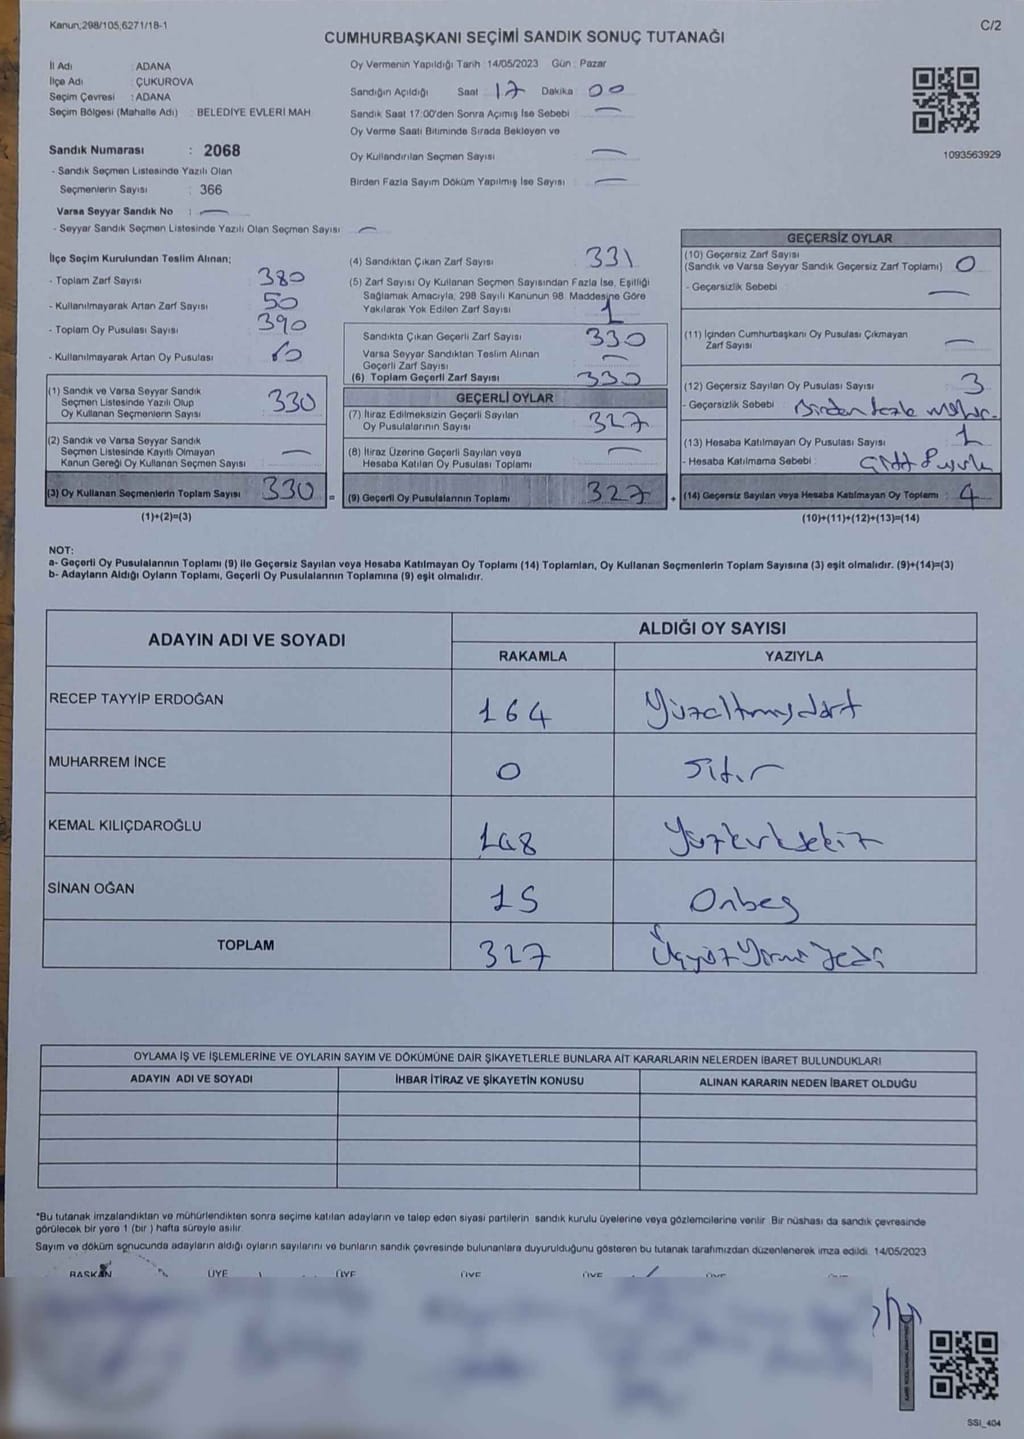 Kanun;298/105,6271/18-1
C/2
CUMHURBAŞKANI SEÇİMİ SANDIK SONUÇ TUTANAĞI
İl Adı : ADANA
İlçe Adı : ÇUKUROVA
Seçim Çevresi : ADANA
Seçim Bölgesi (Mahalle Adı) : BELEDİYE EVLERİ MAH
Sandık Numarası : 2068
- Sandık Seçmen Listesinde Yazılı Olan
Seçmenlerin Sayısı : 366
Varsa Seyyar Sandık No : —
- Seyyar Sandık Seçmen Listesinde Yazılı Olan Seçmen Sayısı —
Oy Vermenin Yapıldığı Tarih : 14/05/2023 Gün : Pazar
Sandığın Açıldığı Saat 17 Dakika : 00
Sandık Saat 17:00'den Sonra Açımış İse Sebebi : —
Oy Verme Saati Bitiminde Sırada Bekleyen ve
Oy Kullandırılan Seçmen Sayısı —
Birden Fazla Sayım Döküm Yapılmış İse Sayısı : —
1093563929
İlçe Seçim Kurulundan Teslim Alınan;
- Toplam Zarf Sayısı 380
- Kullanılmayarak Artan Zarf Sayısı : 50
- Toplam Oy Pusulası Sayısı : 390
- Kullanılmayarak Artan Oy Pusulası : 60
(1) Sandık ve Varsa Seyyar Sandık
Seçmen Listesinde Yazılı Olup
Oy Kullanan Seçmenlerin Sayısı 330
(2) Sandık ve Varsa Seyyar Sandık
Seçmen Listesinde Kayıtlı Olmayan
Kanun Gereği Oy Kullanan Seçmen Sayısı —
(3) Oy Kullanan Seçmenlerin Toplam Sayısı 330 =
(1)+(2)=(3)
(4) Sandıktan Çıkan Zarf Sayısı 331
(5) Zarf Sayısı Oy Kullanan Seçmen Sayısından Fazla İse, Eşitliği
Sağlamak Amacıyla, 298 Sayılı Kanunun 98. Maddesine Göre
Yakılarak Yok Edilen Zarf Sayısı 1
Sandıkta Çıkan Geçerli Zarf Sayısı : 330
Varsa Seyyar Sandıktan Teslim Alınan
Geçerli Zarf Sayısı —
(6) Toplam Geçerli Zarf Sayısı 330
GEÇERLİ OYLAR
(7) İtiraz Edilmeksizin Geçerli Sayılan
Oy Pusulalarının Sayısı 327
(8) İtiraz Üzerine Geçerli Sayılan veya
Hesaba Katılan Oy Pusulası Toplamı —
(9) Geçerli Oy Pusulalarının Toplamı 327 +
GEÇERSİZ OYLAR
(10) Geçersiz Zarf Sayısı
(Sandık ve Varsa Seyyar Sandık Geçersiz Zarf Toplamı) : 0
- Geçersizlik Sebebi —
(11) İçinden Cumhurbaşkanı Oy Pusulası Çıkmayan
Zarf Sayısı —
(12) Geçersiz Sayılan Oy Pusulası Sayısı : 3
- Geçersizlik Sebebi Birden fazla mühür.
(13) Hesaba Katılmayan Oy Pusulası Sayısı : 1
- Hesaba Katılmama Sebebi :
(14) Geçersiz Sayılan veya Hesaba Katılmayan Oy Toplamı : 4
(10)+(11)+(12)+(13)=(14)
NOT:
a- Geçerli Oy Pusulalarının Toplamı (9) İle Geçersiz Sayılan veya Hesaba Katılmayan Oy Toplamı (14) Toplamları, Oy Kullanan Seçmenlerin Toplam Sayısına (3) eşit olmalıdır. (9)+(14)=(3)
b- Adayların Aldığı Oyların Toplamı, Geçerli Oy Pusulalarının Toplamına (9) eşit olmalıdır.
ADAYIN ADI VE SOYADI
ALDIĞI OY SAYISI
RAKAMLA YAZIYLA
RECEP TAYYİP ERDOĞAN 164 Yüzaltmışdört
MUHARREM İNCE 0 sıfır
KEMAL KILIÇDAROĞLU 148 Yüzkırksekiz
SİNAN OĞAN 15 Onbeş
TOPLAM 327 Üçyüzyirmi yedi
OYLAMA İŞ VE İŞLEMLERİNE VE OYLARIN SAYIM VE DÖKÜMÜNE DAİR ŞİKAYETLERLE BUNLARA AİT KARARLARIN NELERDEN İBARET BULUNDUKLARI
ADAYIN ADI VE SOYADI İHBAR İTİRAZ VE ŞİKAYETİN KONUSU ALINAN KARARIN NEDEN İBARET OLDUĞU
*Bu tutanak imzalandıktan ve mühürlendikten sonra seçime katılan adayların ve talep eden siyasi partilerin sandık kurulu üyelerine veya gözlemcilerine verilir. Bir nüshası da sandık çevresinde
görülecek bir yere 1 (bir ) hafta süreyle asılır.
Sayım ve döküm sonucunda adayların aldığı oyların sayılarını ve bunların sandık çevresinde bulunanlara duyurulduğunu gösteren bu tutanak tarafımızdan düzenlenerek imza edildi. 14/05/2023
BAŞKAN ÜYE ÜYE ÜYE ÜYE ÜYE
SSI_404